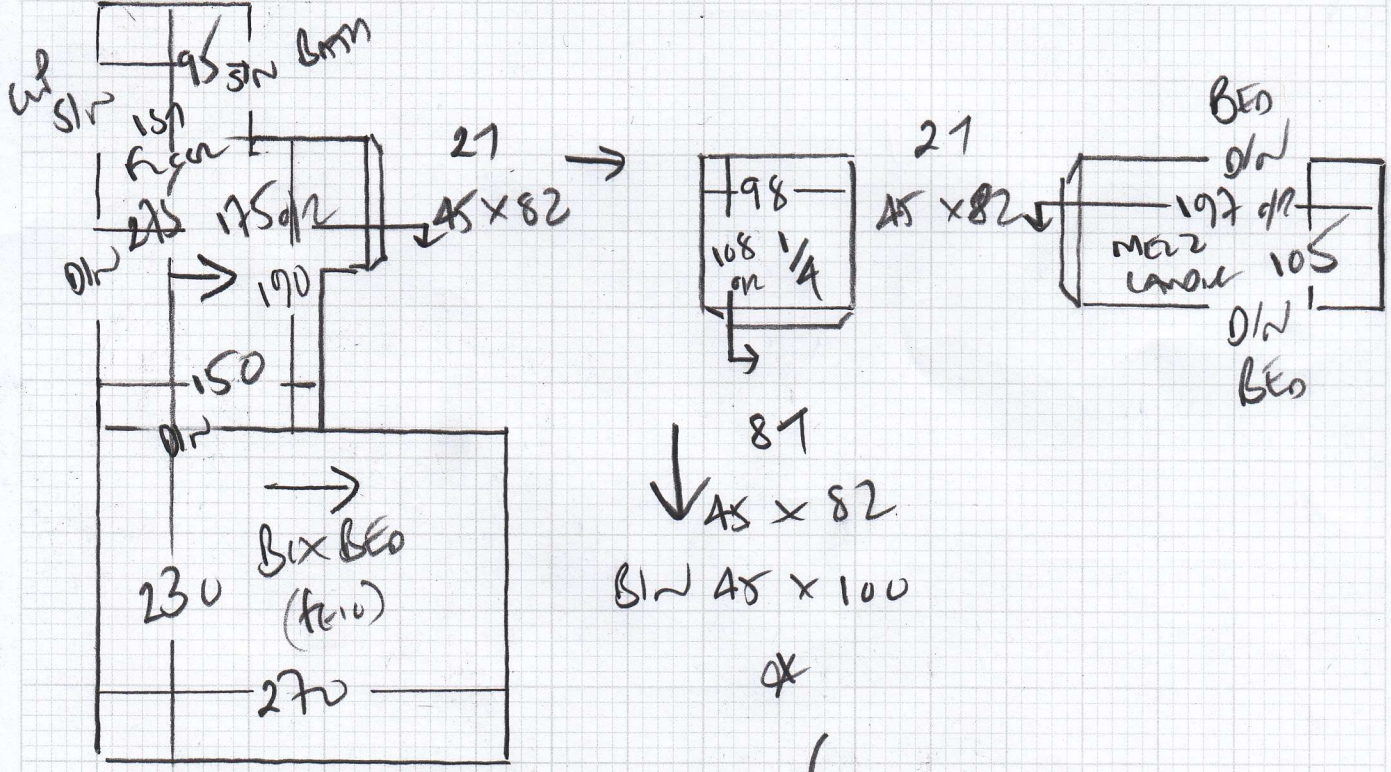 95 S/N BATH
S/N
1ST
FLOOR
275 175 O/R
D/N
190
150
D/N
BOX BED
230
270
21
45 x 82
98
108 1/4
O/R
21
45 x 82
BED
D/N
197 O/R
MEZZ
LANDING 105
D/N
BED
81
45 x 82
BIN 45 x 100